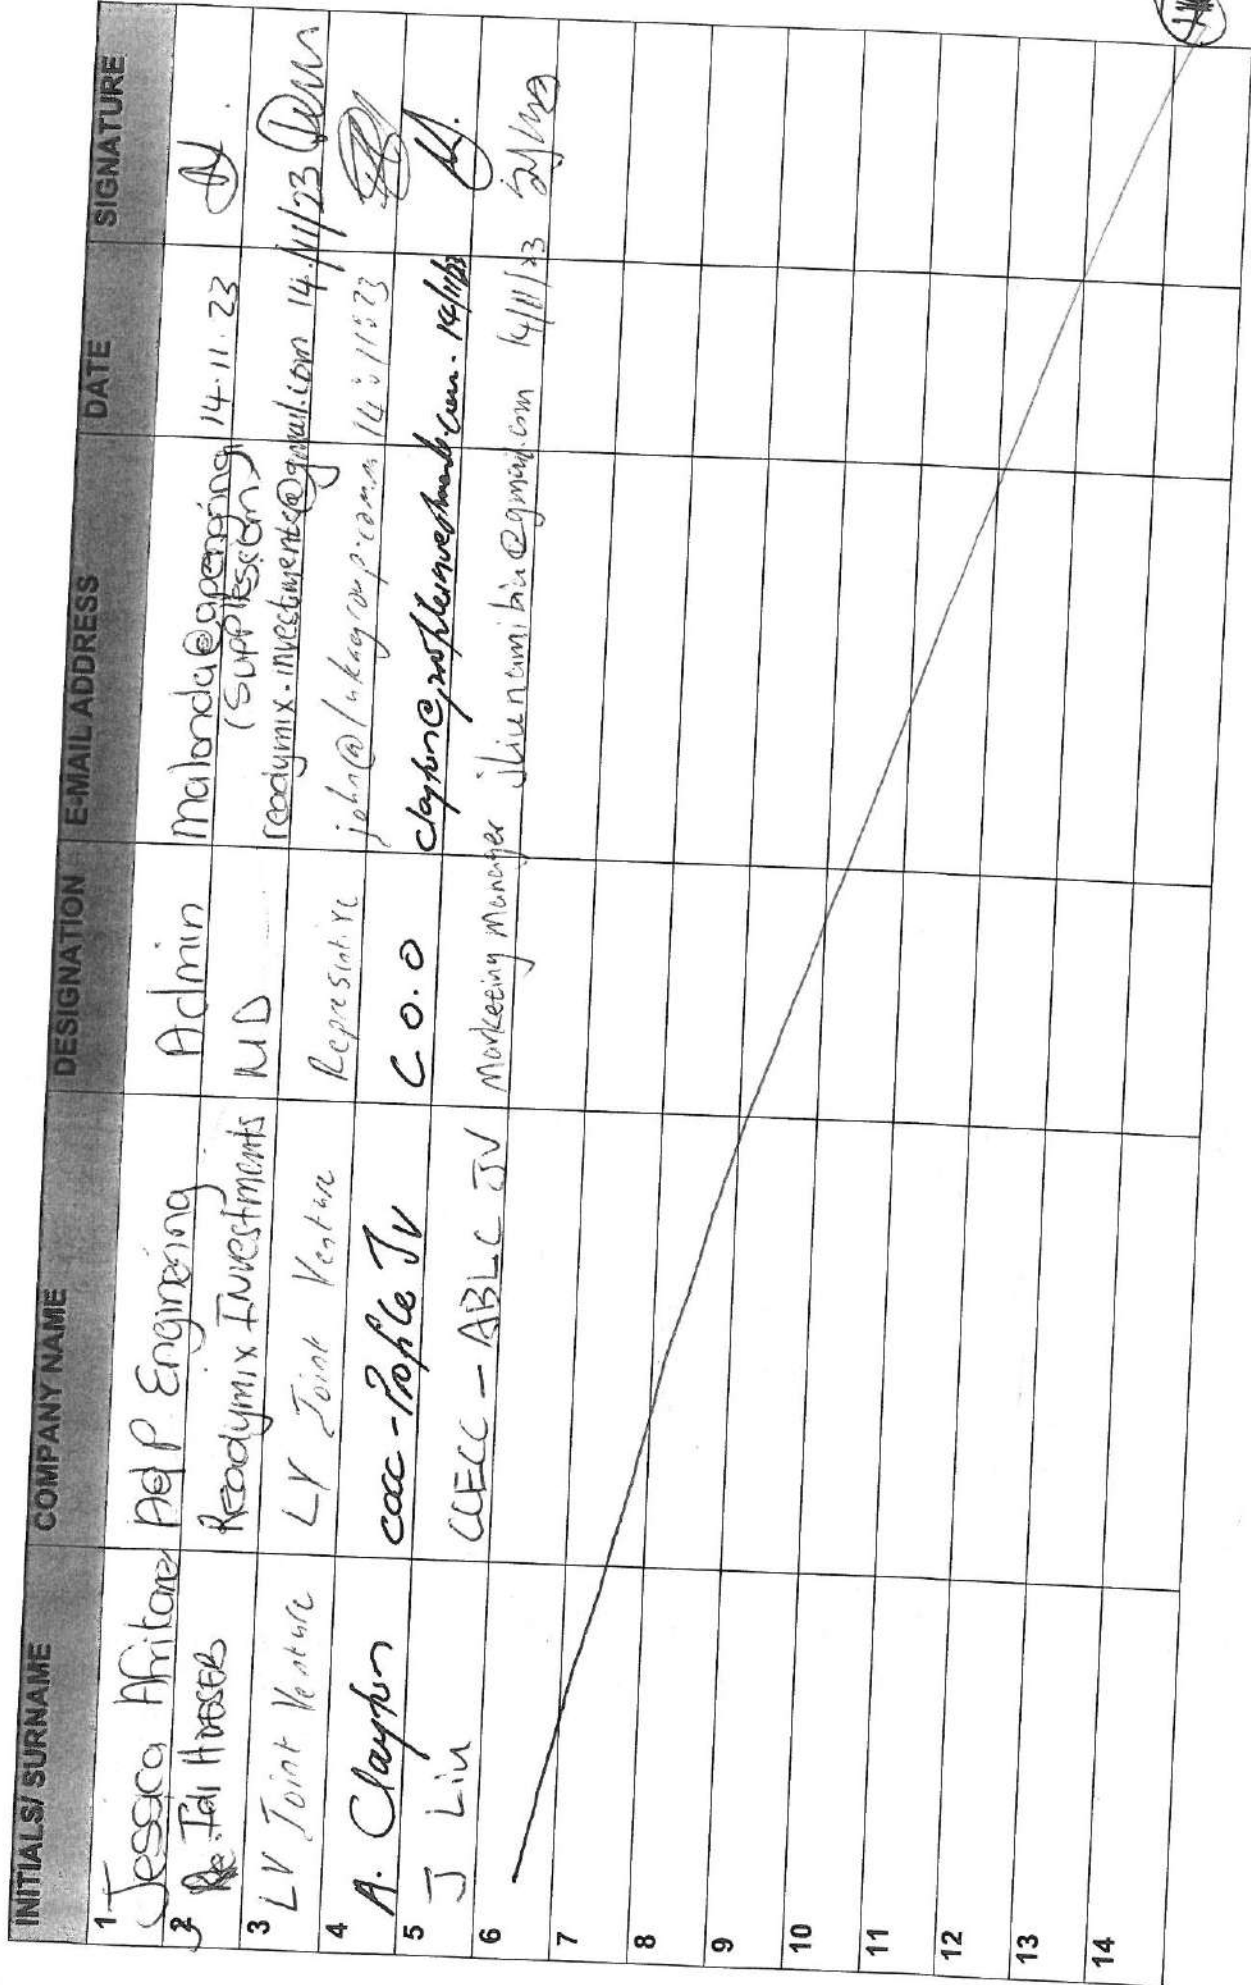 INITIALS/ SURNAME COMPANY NAME DESIGNATION E-MAIL ADDRESS DATE SIGNATURE
1 Jessica Afrikaner A&P Enginering Admin malonda@apenging 14.11.23
(suppliescom)
2 HOESEB Readymix Investments MD readymix.investments@gmail.com 14/11/23
3 LV Joint Venture LV Joint Venture Represintive john@lukagroup.com 14.11.23
4 A. Clayton - Profile JV C.O.O 14/11/23
5 J Liu CCECC - ABLC JV Marketing Manager jliunamibia@gmail.com 14/11/23
6
7
8
9
10
11
12
13
14